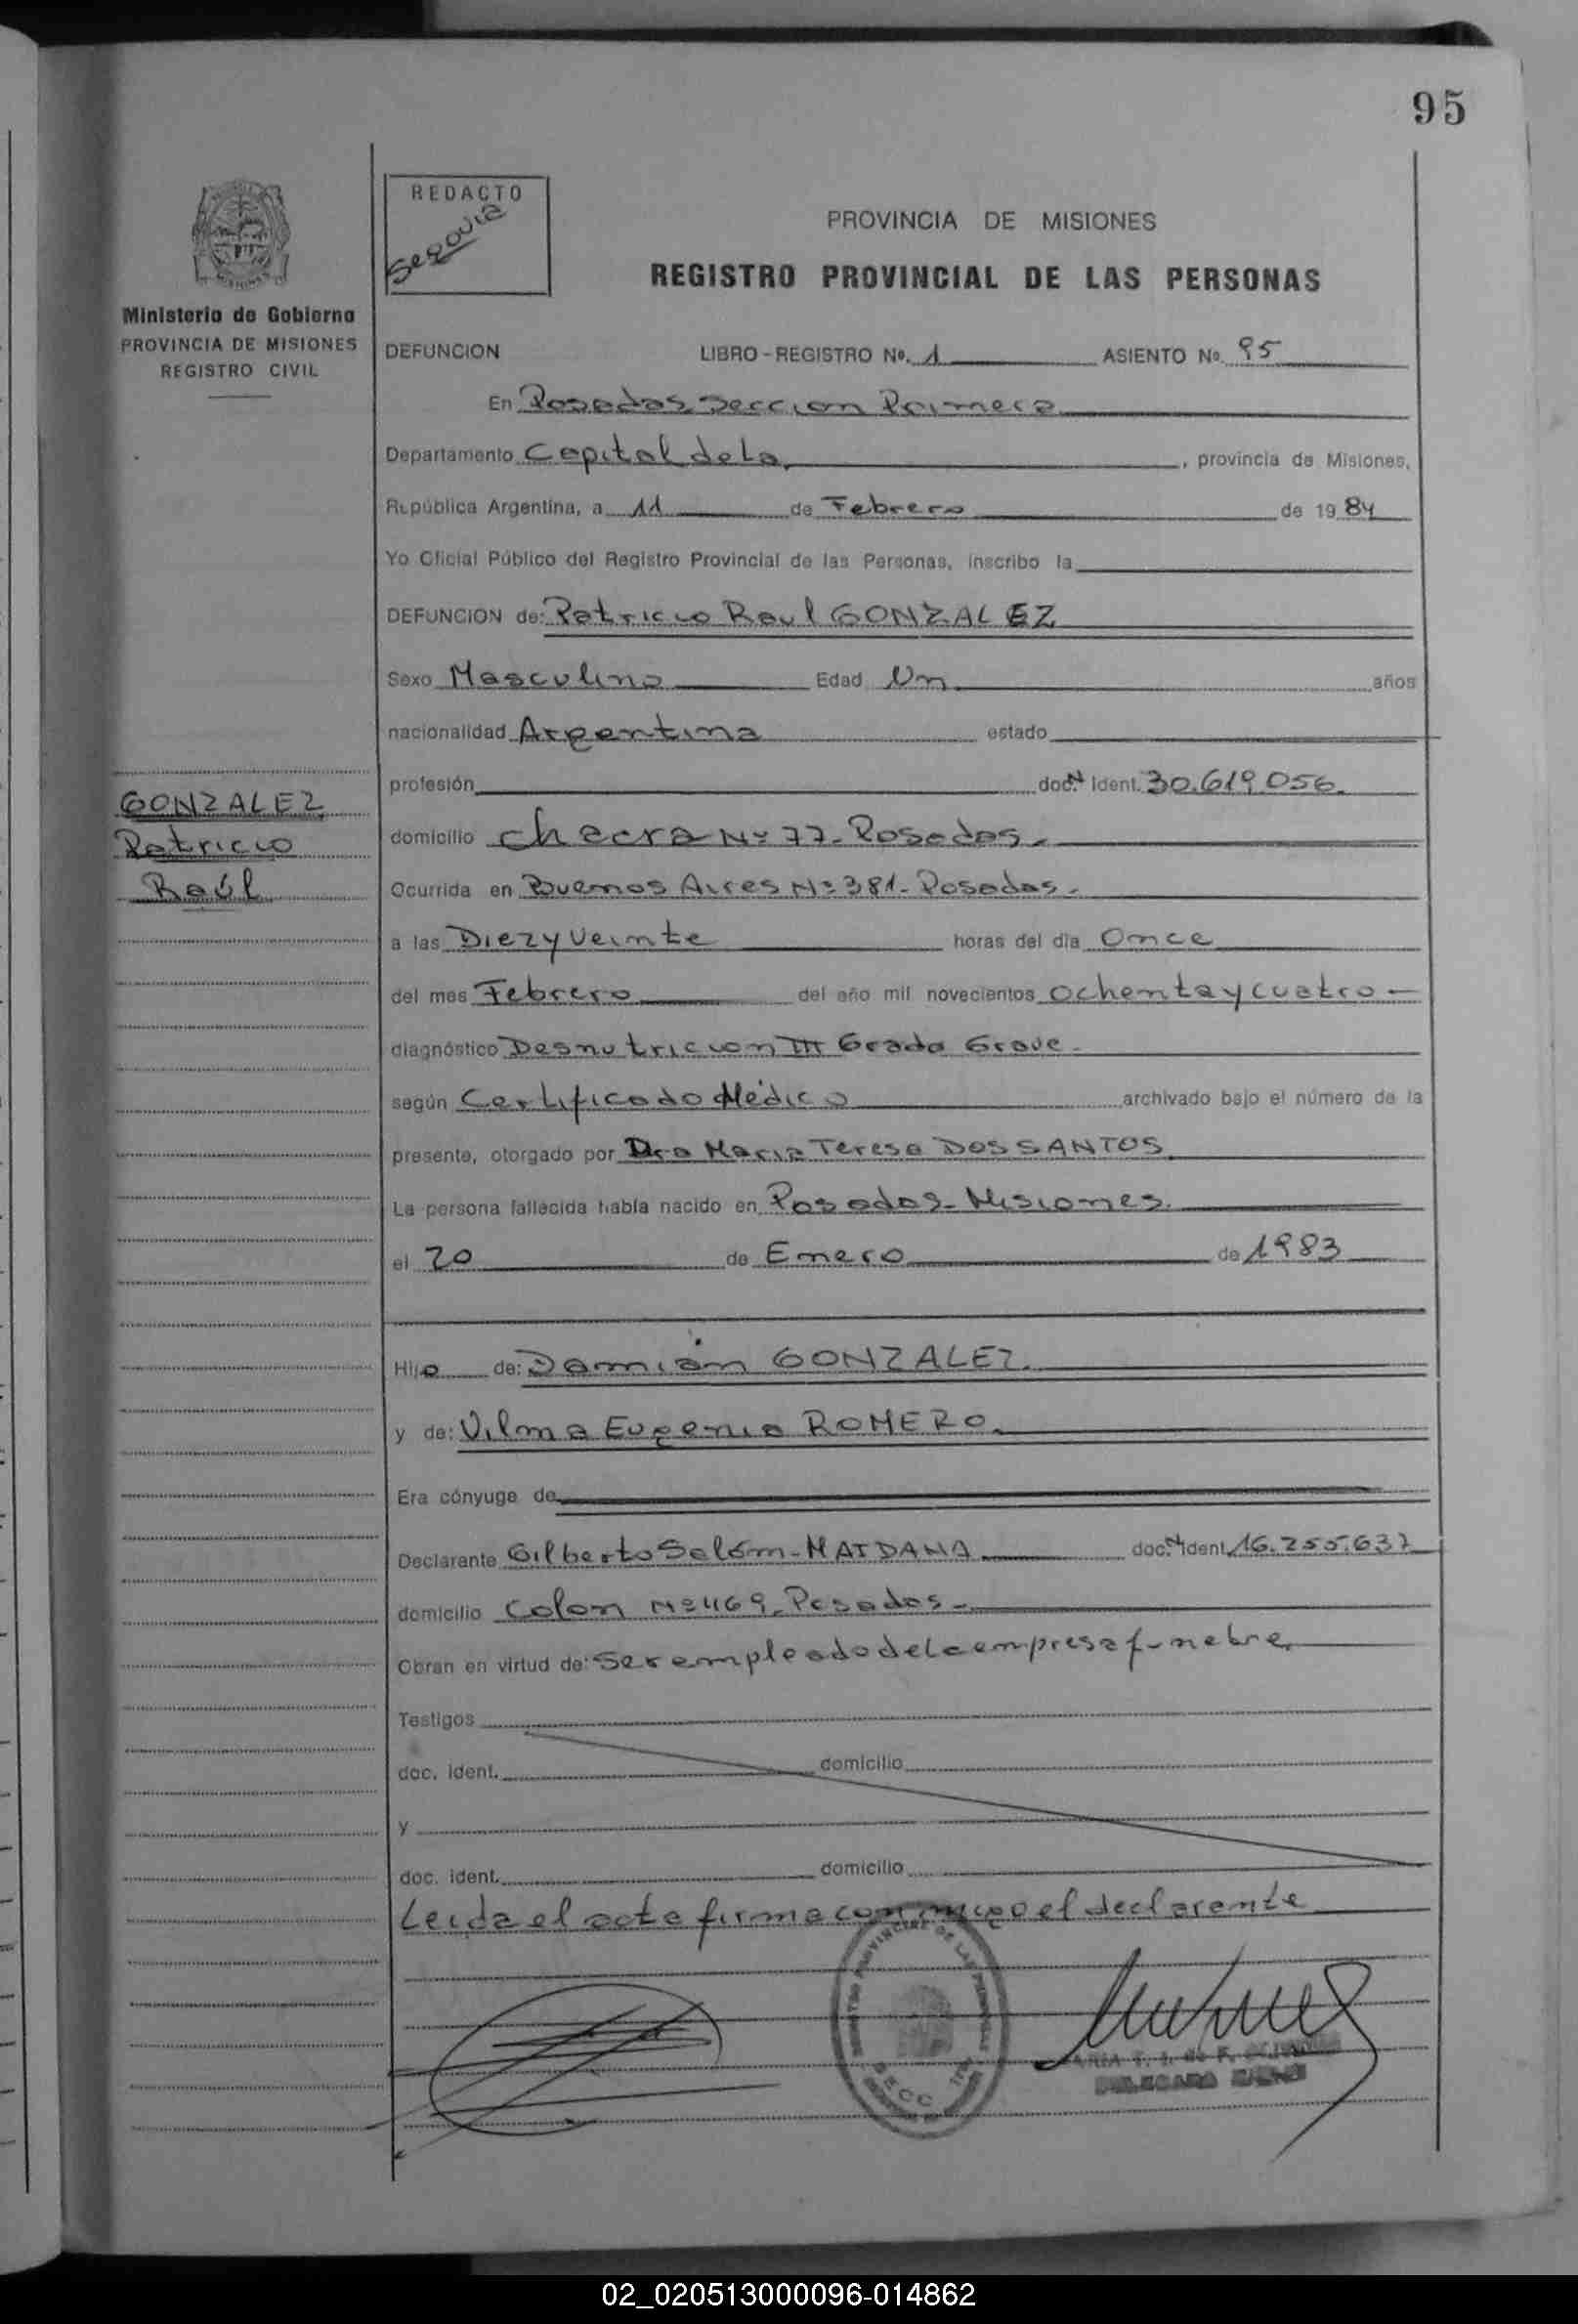 95
REDACTO
Segovia
PROVINCIA DE MISIONES
REGISTRO PROVINCIAL DE LAS PERSONAS
Ministerio de Gobierno
PROVINCIA DE MISIONES
REGISTRO CIVIL
DEFUNCION LIBRO-REGISTRO Nº. 1 ASIENTO No. 95
En Posadas Seccion Primera
Departamento Capital de la, provincia de Misiones,
República Argentina, a 11 de Febrero de 1984
Yo Oficial Público del Registro Provincial de las Personas, inscribo la
DEFUNCION de: Patricio Raul GONZALEZ
Sexo Masculino Edad Un años
nacionalidad Argentina estado
profesión doc. N ident. 30.619.056.
GONZALEZ
Patricio
Raúl
domicilio Chacra Nº 77- Posadas.
Ocurrida en Buenos Aires Nº 381- Posadas.
a las Diez y Veinte horas del día Once
del mes Febrero del año mil novecientos Ochenta y cuatro -
diagnóstico Desnutricion III Grado Grave.
según Certificado Médico archivado bajo el número de la
presente, otorgado por Dra Maria Teresa DOS SANTOS.
La persona fallecida había nacido en Posadas- Misiones.
el 20 de Enero de 1983
Hijo de: Damián GONZALEZ.
y de: Vilma Eugenia ROMERO.
Era cónyuge de
Declarante Gilberto Salóm- MAIDANA doc. N ident. 16.255.637
domicilio Colon Nº 1169- Posadas-
Obran en virtud de: Ser empleado de la empresa funebre.
Testigos
doc. ident. domicilio
y
doc. ident. domicilio
Leida el acta firma conmigo el declarante
REGISTRO PROVINCIAL DE LAS PERSONAS
SECC
02_020513000096-014862